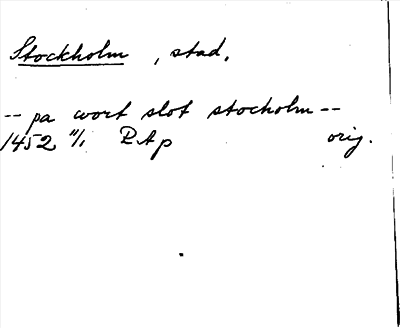 Stockholm, stad.
-- pa wort slot stocholm --
1452 11/1 RAp orig.